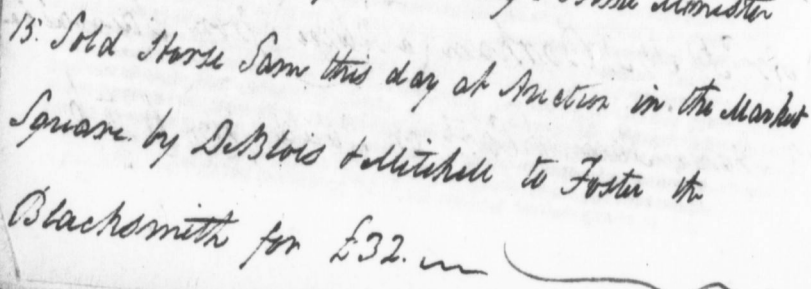 Minister
15. Sold Horse Sam this day at Auction in the Market
Square by DeBlois & Mitchell to Foster the
Blacksmith for £32.